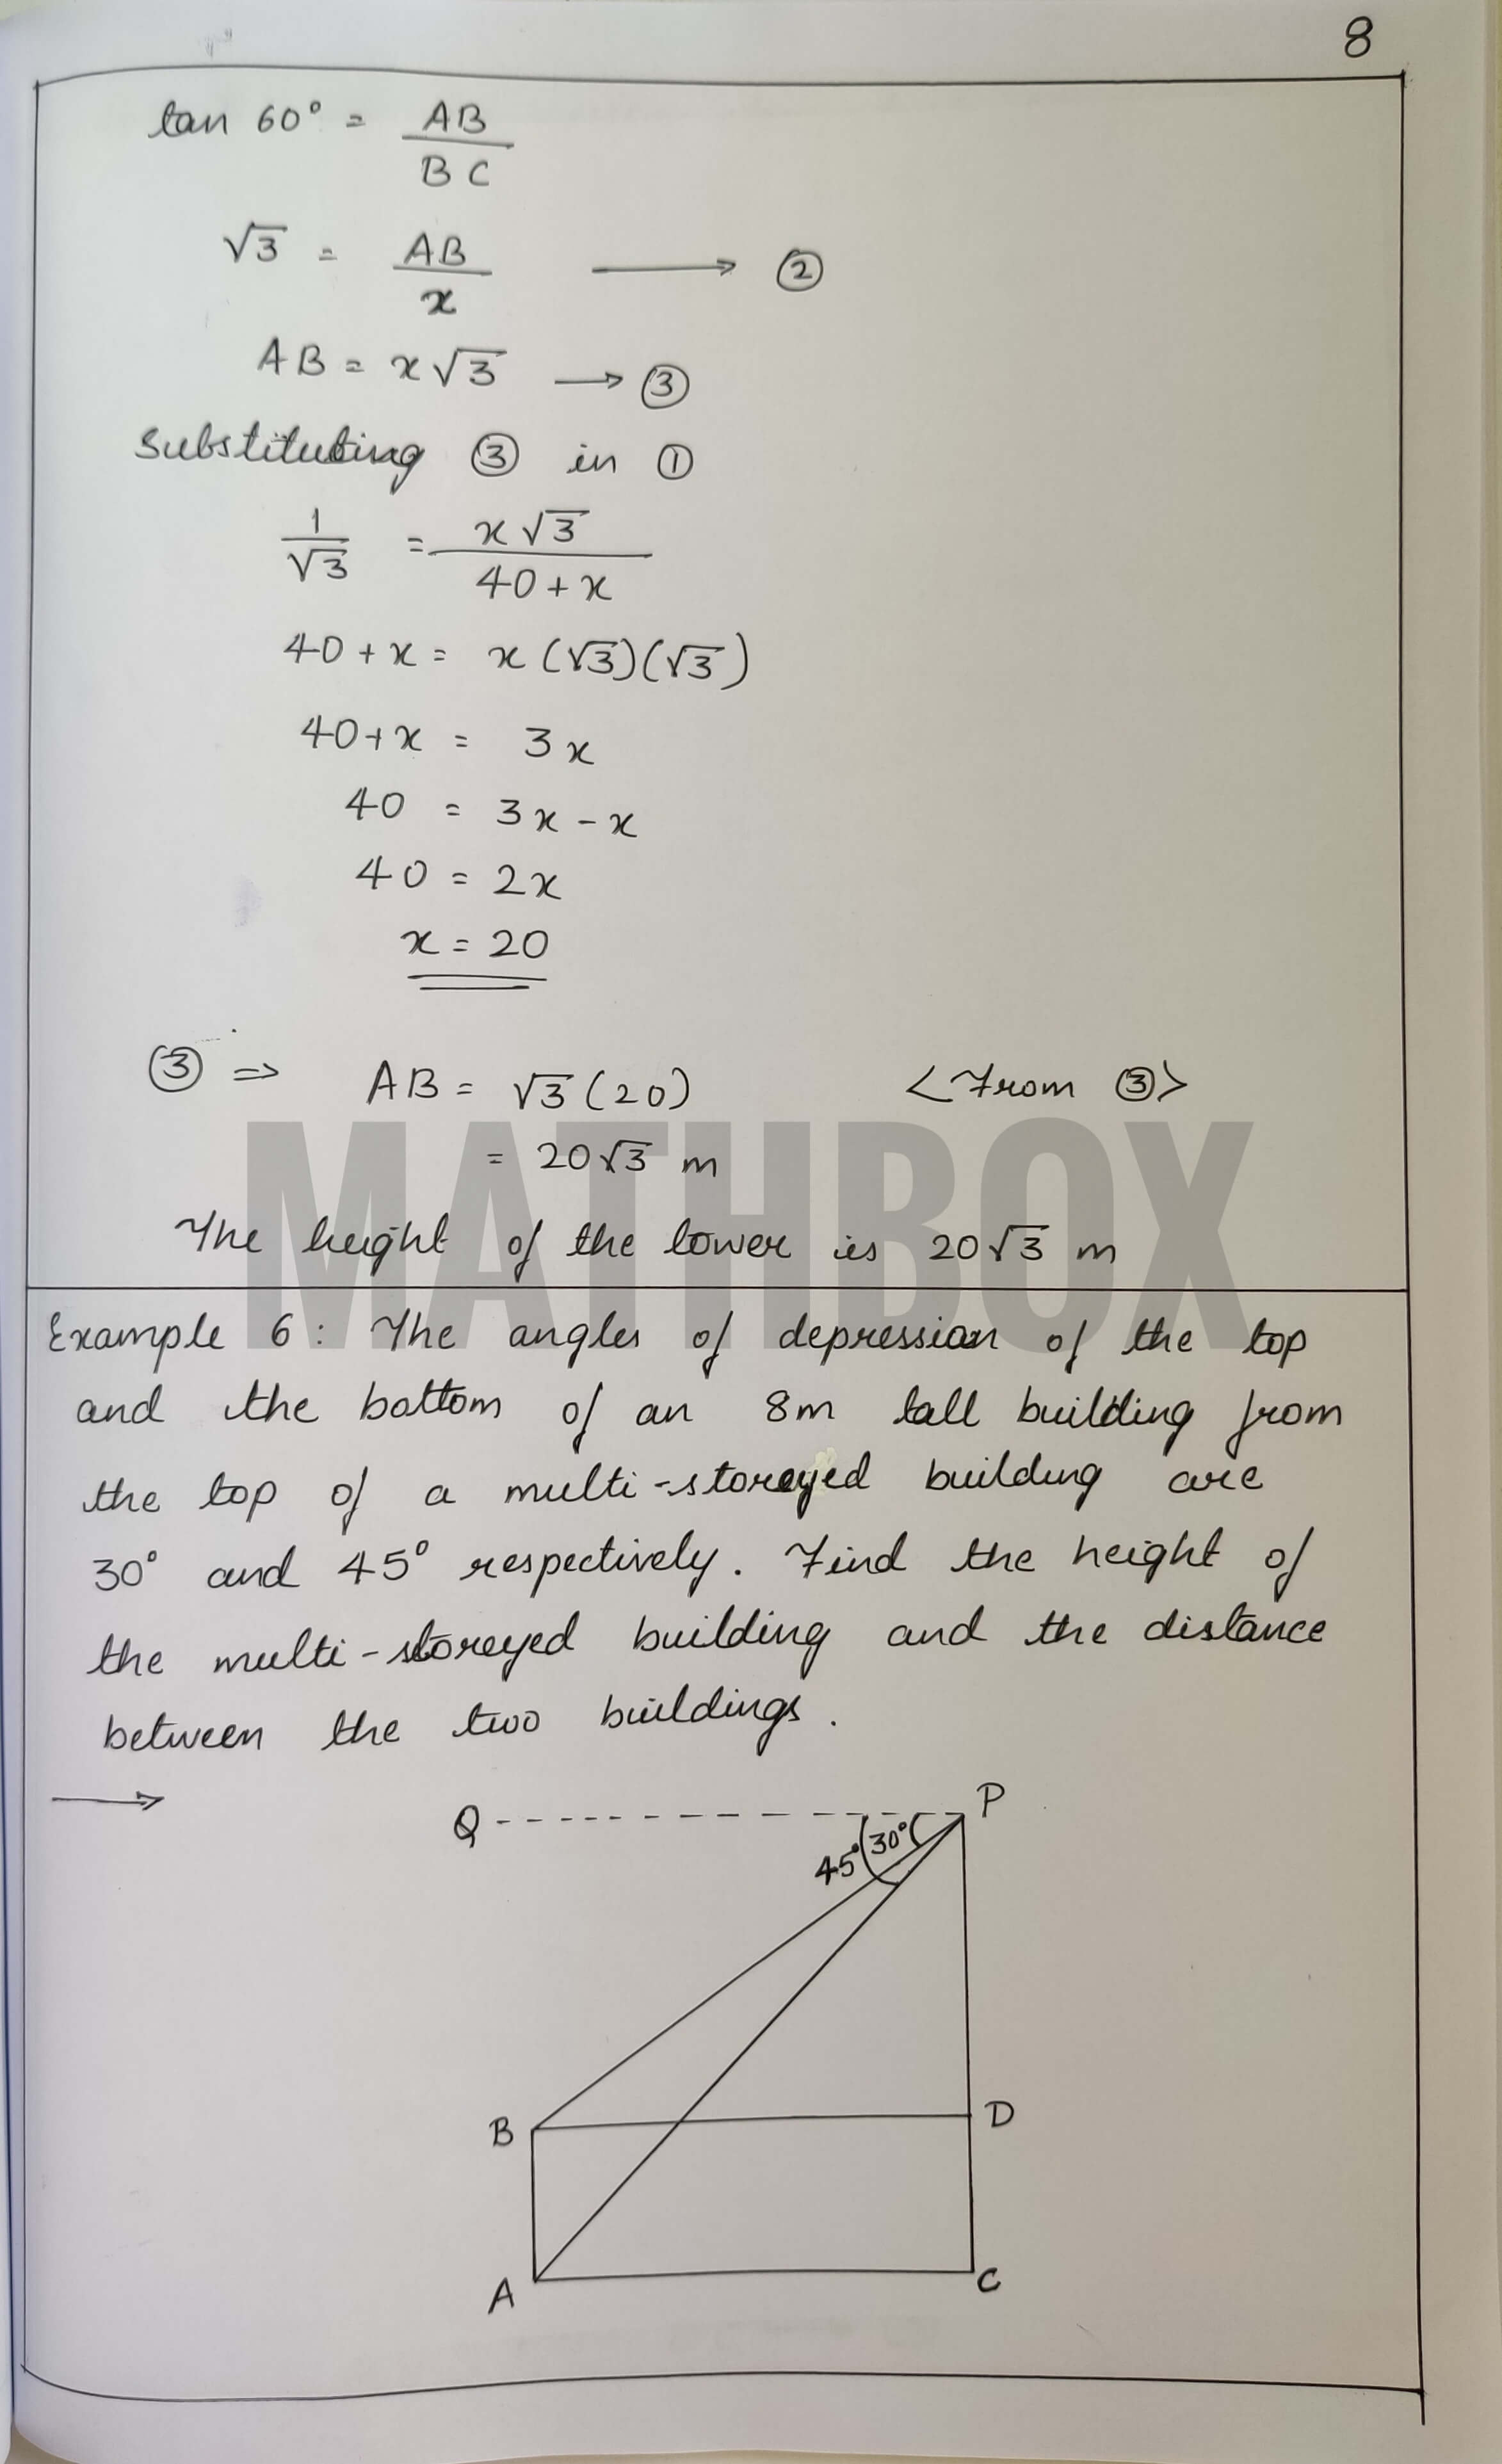 8
tan 60° = AB / BC
√3 = AB / x ⟶ ②
AB = x√3 → ③
Substituting ③ in ①
1 / √3 = x√3 / 40 + x
40 + x = x (√3)(√3)
40 + x = 3x
40 = 3x - x
40 = 2x
x = 20
③ ⇒ AB = √3 (20) <From ③>
= 20√3 m
MATHBOX
The height of the tower is 20√3 m
Example 6 : The angles of depression of the top
and the bottom of an 8m tall building from
the top of a multi-storeyed building are
30° and 45° respectively. Find the height of
the multi-storeyed building and the distance
between the two buildings.
⟶
Q P
45° 30°
B D
A C